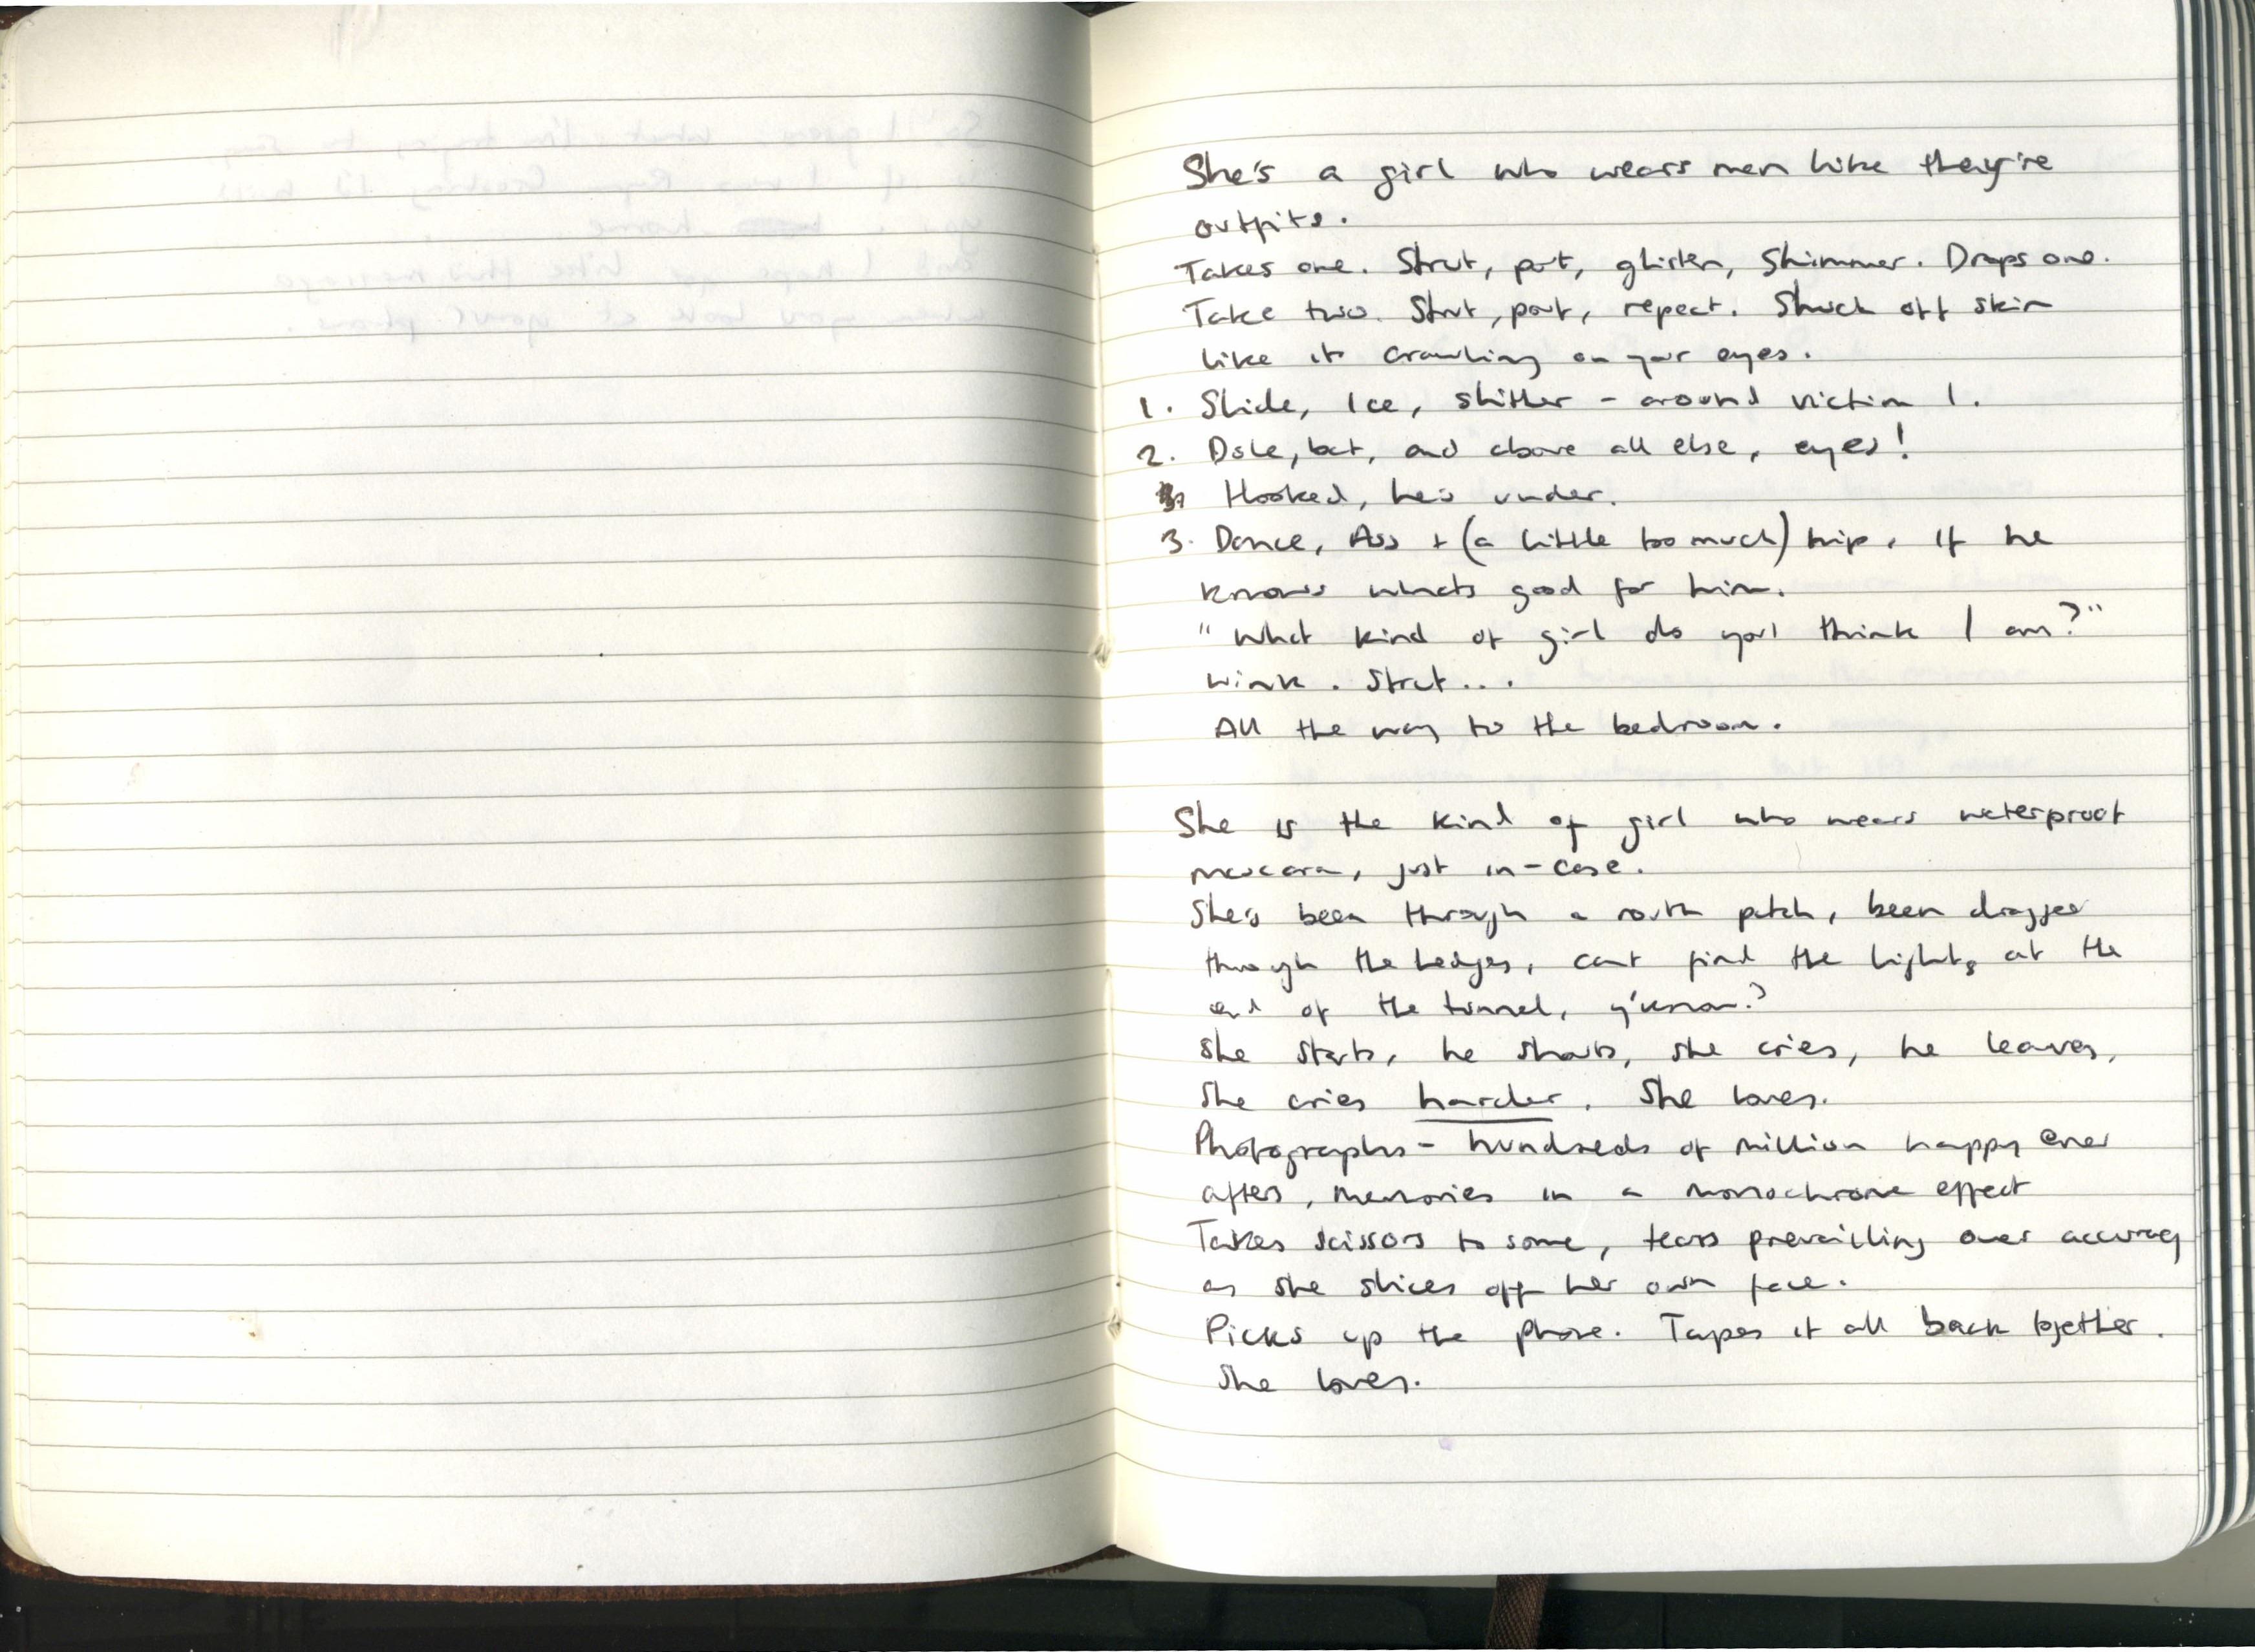 She's a girl who wears men like they're
outfits.
Takes one. Strut, pout, glisten, Shimmer. Drops one.
Take two. Strut, pout, repeat. Struck off skin
like it crawling on your eyes.
1. Slide, Ice, slither - around victim 1.
2. Dole, bat, and above all else, eyes!
Hooked, he's under.
3. Dance, Ass + (a little too much) hip. If he
knows whats good for him.
"What kind of girl do you think I am?"
Wink. Strut...
All the way to the bedroom.
She is the kind of girl who wears waterproof
mascara, just in-case.
She's been through a routh patch, been dragged
through the hedges, cant find the light at the
end of the tunnel, y'know?
She starts, he shouts, she cries, he leaves,
She cries harder. She loves.
Photographs - hundreds of million happy ever
afters, memories in a monochrome effect
Takes scissors to some, tears prevailing over accuracy
as she slices off her own face.
Picks up the phone. Tapes it all back together.
She loves.